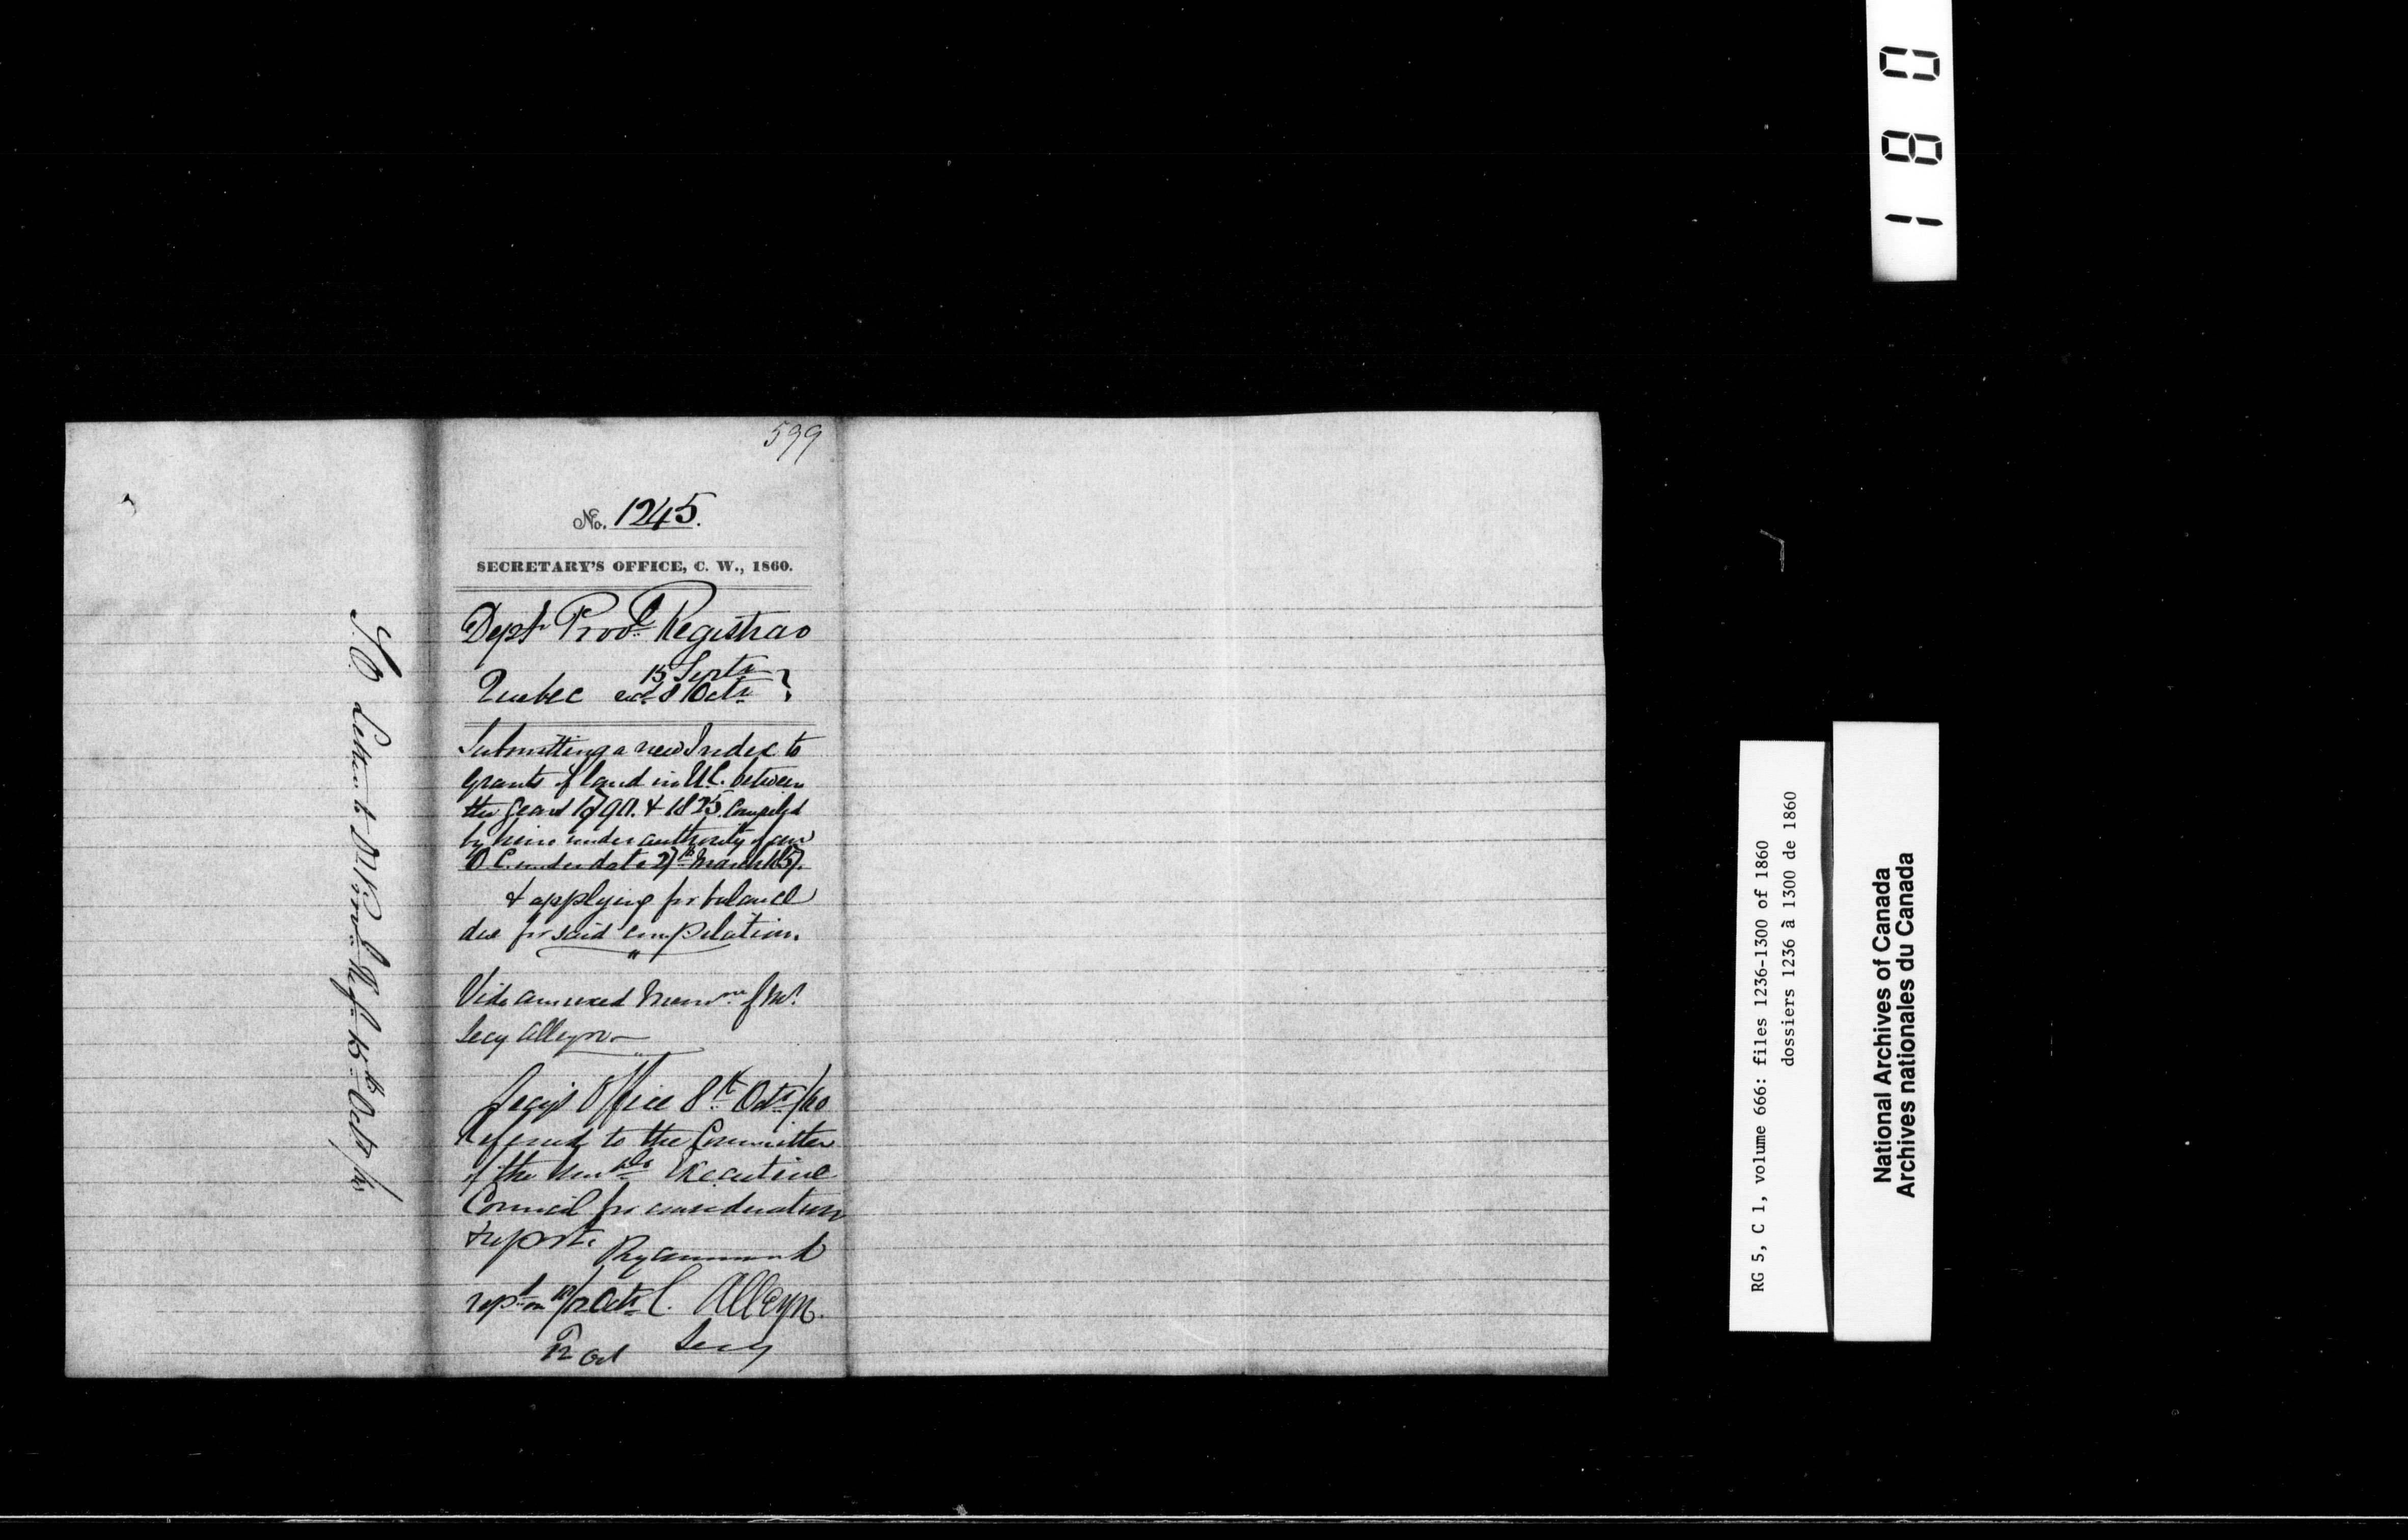 599
No. 1245.
SECRETARY'S OFFICE, C. W., 1860.
Depy Provl Registrar
15 Septr
Quebec recd 8 Octr
Submitting a new Index to
Grants of land in U.C. between
the years 1790. & 1825. Compiled
by him under authority of an
O.C. under date 27th March /57.
& applying for balance
due for said compilation.
Vide annexed Memom of Mr.
Secy Alleyn
Secy's Office 8th Octr /60
Referred to the Committee
of the Honble Executive
Council for consideration
& report.
By command
repd on 12 Octr C. Alleyn.
12 Oct Secy
Letter to D. Provl Regr 15th Octr /60
180
RG 5, C 1, volume 666: files 1236-1300 of 1860
dossiers 1236 à 1300 de 1860
National Archives of Canada
Archives nationales du Canada